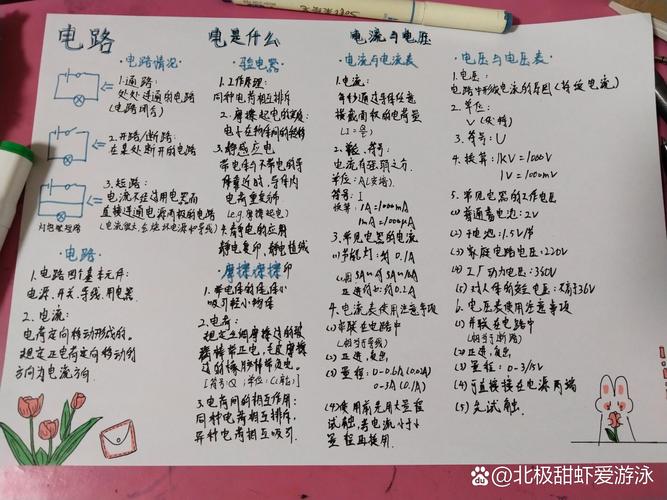 电路
·电路情况·
1.通路:
处处连通的电路
(电路闭合)
2.开路/断路:
在某处断开的电路
3.短路:
电流不经过用电器而
直接连通电源两极的电路
灯泡被短路
·电路·
1.电路四个基本元件:
电源、开关、导线、用电器
2.电流:
电荷定向移动形成的。
规定正电荷定向移动的
方向为电流方向.
电是什么
·验电器·
1.工作原理:
同种电荷相互排斥
2.摩擦起电的实质:
电子在物体间的转移
3.静电感应
带电体与不带电的导
体靠近时,导体内
电荷重新分布
(e.g.摩擦起电)
4.静电的应用
静电复印、静电植绒
1.带电体的性质:
吸引轻小物体
2.电荷:
[符号:Q;单位:C(库仑)]
3.电荷间的相互作用:
同种电荷相互排斥,
异种电荷相互吸引.
电流与电压
·电流与电流表·
1.电流:
横截面积的电荷量
2.单位、符号:
电流有强弱之分.
单位:A(安培)
符号:I
换算:1A=1000mA
1mA=1000μA
3.常见电器的电流
(1)节能灯:约0.1A
4.电流表使用注意事项
(1)串联在电路中
(相当于导线)
(2)正进,负出
(3)量程:0-0.6A(0.02A)
0-3A(0.1A)
(4)使用前先用大量程
试触,若电流小于小
量程再换用.
·电压与电压表·
1.电压:
电路中形成电流的原因(持续电流)
2.单位:
V(伏特)
3.符号:U
4.换算:1KV=1000V
1V=1000mV
5.常见电器的工作电压
(1)普通蓄电池:2V
(2)干电池:1.5V/节
(3)家庭电路电压:220V
(4)工厂动力电压:380V
(5)对人体的安全电压:不高于36V
6.电压表使用注意事项
(1)并联在电路中
(相当于断路)
(2)正进,负出
(3)量程:0-3/15V
(4)可直接接在电源两端
(5)先试触.
Bai du 百科 @北极甜虾爱游泳